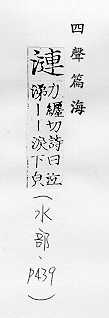 四聲篇海
漣 力纏切詩曰泣
涕丨丨淚下皃
(水部、P439)